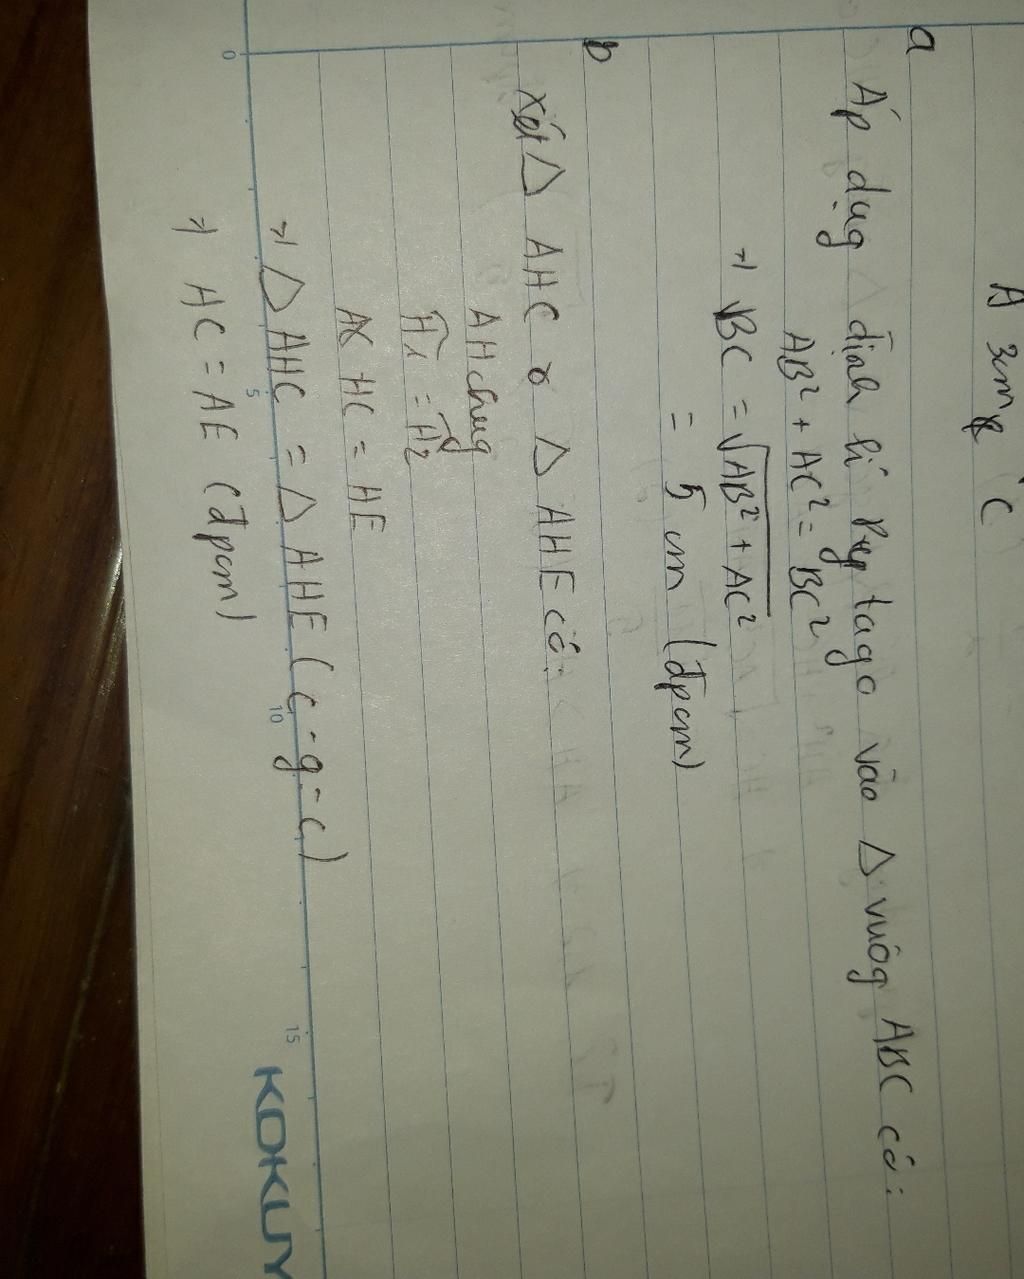 A 3cm C
a
Áp dụg định lí Pytago vào Δ vuôg ABC có:
AB² + AC² = BC²
⇒ BC = √AB² + AC²
= 5 cm (đpcm)
b
Xét Δ AHC & Δ AHE có:
AH chug
H₁ = H₂
HC = HE
⇒ Δ AHC = Δ AHE (c-g-c)
⇒ AC = AE (đpcm)
0 5 10 15
KOKUY